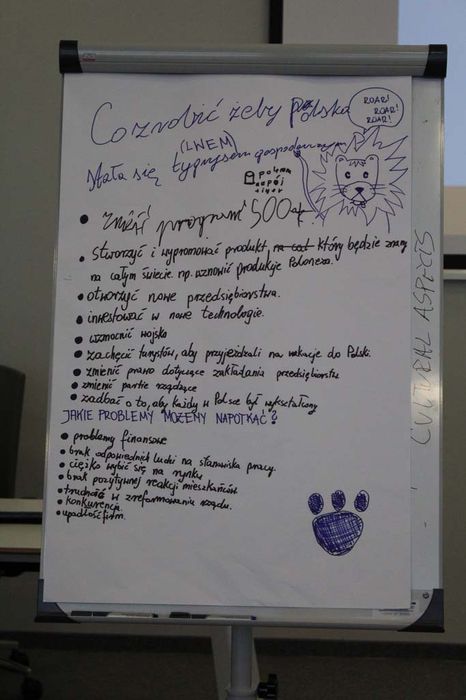 Co zrobić żeby Polska
(LWEM)
stała się tygrysem gospodarczym
ROAR!
ROAR!
ROAR!
• Znieść program 500+
• stworzyć i wypromować produkt, który będzie znany
na całym świecie np. wznowić produkcje Poloneza.
• otworzyć nowe przedsiębiorstwa.
• inwestować w nowe technologie.
• wzmocnić wojsko
• zachęcić turystów, aby przyjeżdżali na wakacje do Polski.
• zmienić prawo dotyczące zakładania przedsiębiorstw
• zmienić partie rządzące
• zadbać o to, aby każdy w Polsce był wykształcony
JAKIE PROBLEMY MOŻEMY NAPOTKAĆ?
• problemy finansowe
• brak odpowiednich ludzi na stanowiska pracy.
• ciężko wybić się na rynku
• brak pozytywnej reakcji mieszkańców
• trudność w zreformowaniu rządu.
• konkurencja.
• upadłość firm.
CULTURAL ASPECTS